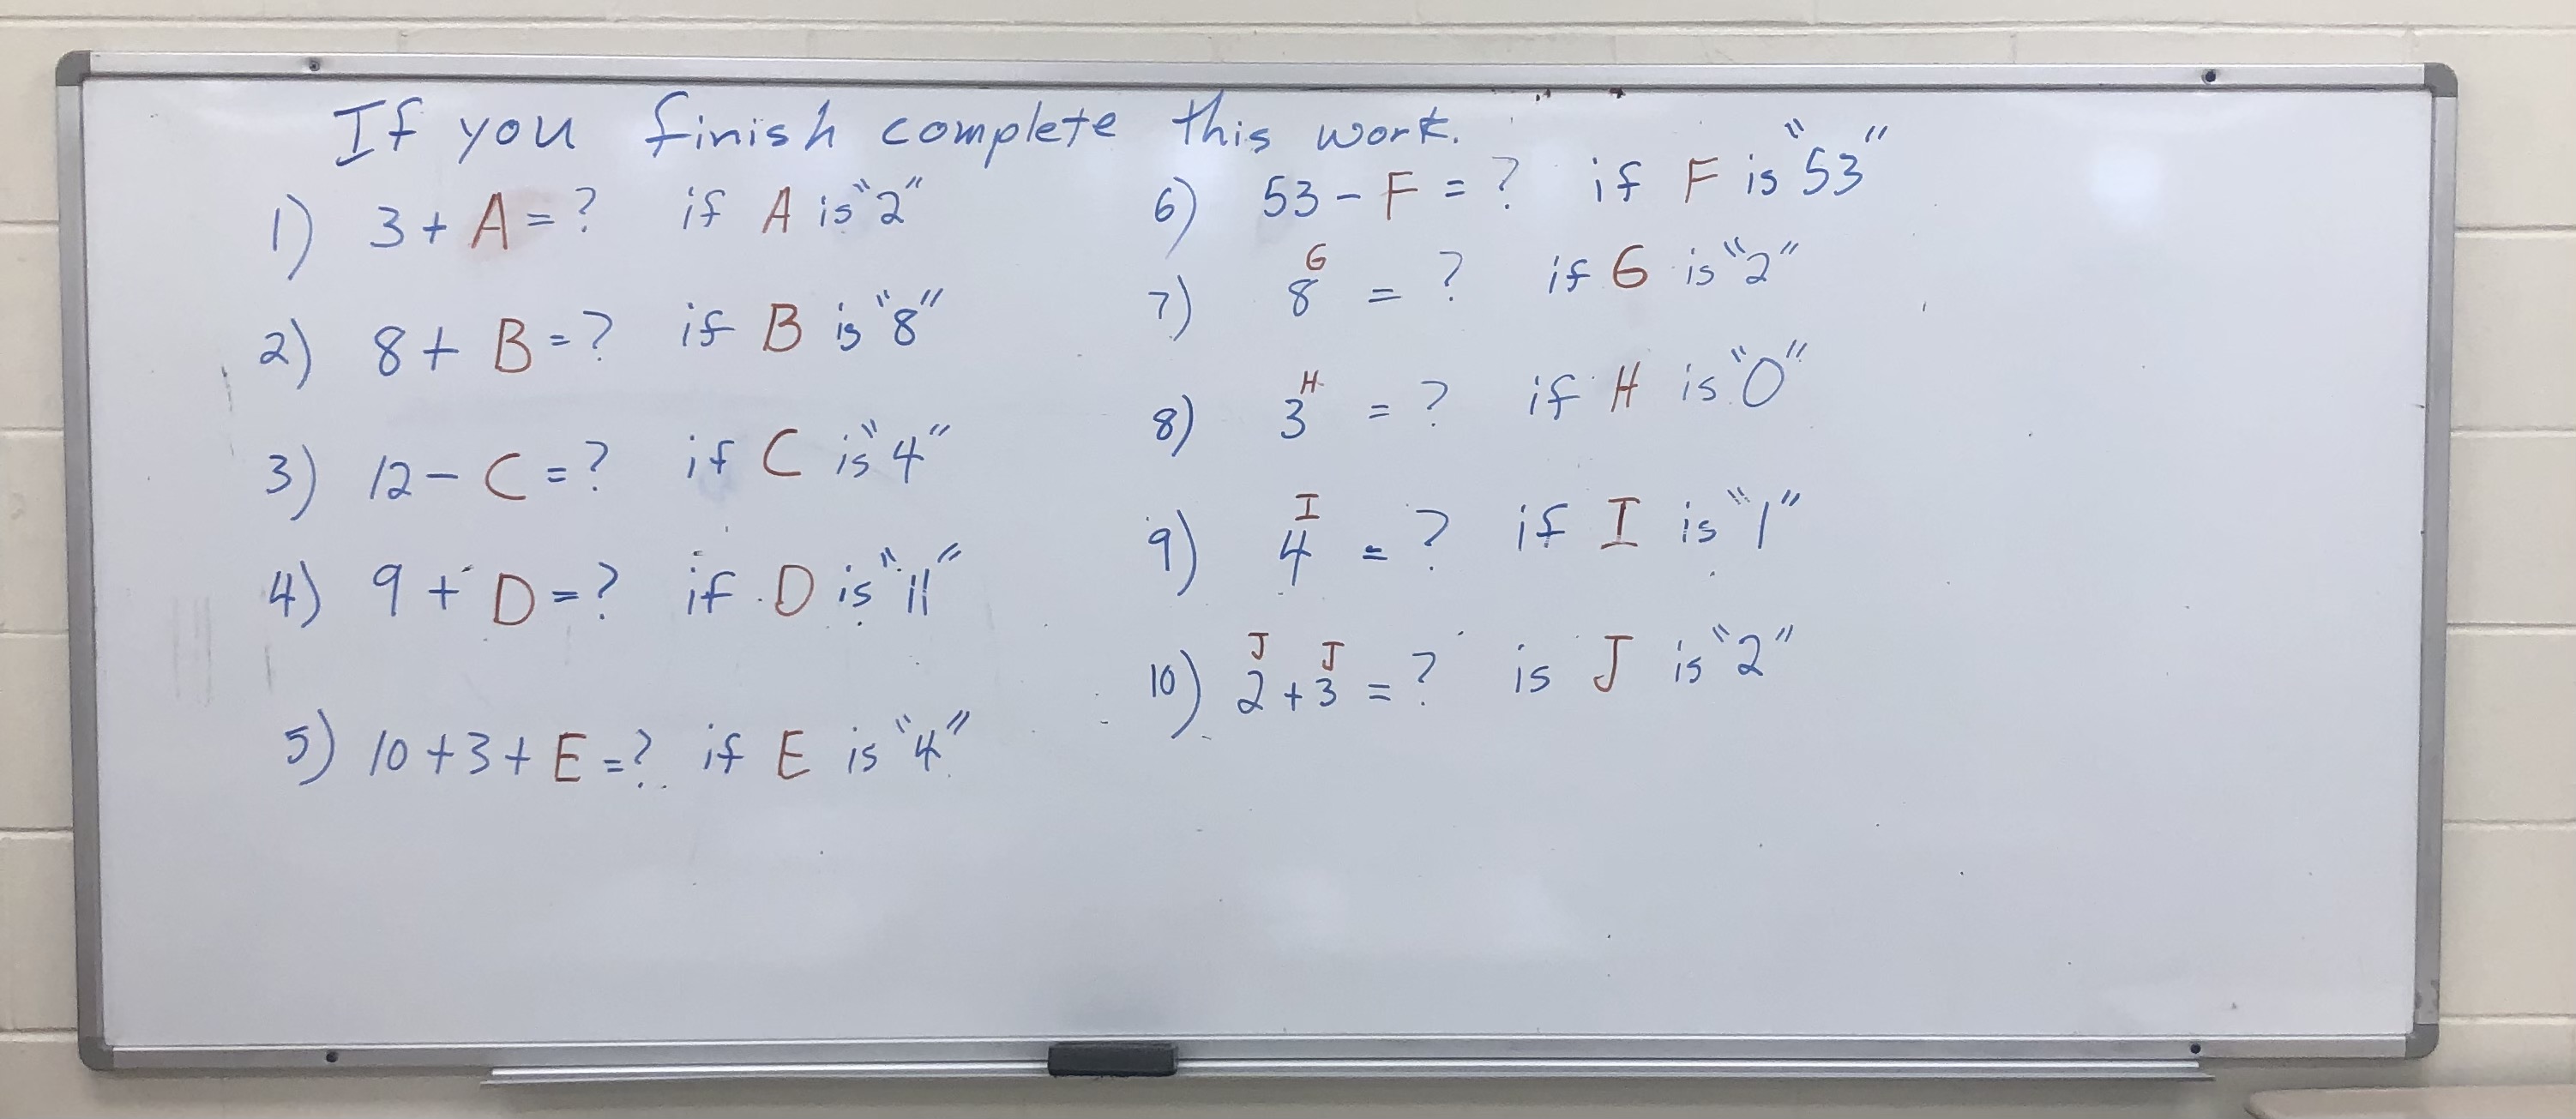 If you finish complete this work.
1) 3 + A = ? if A is "2"
2) 8 + B = ? if B is "8"
3) 12 - C = ? if C is "4"
4) 9 + D = ? if D is "11"
5) 10 + 3 + E = ? if E is "4"
6) 53 - F = ? if F is "53"
7) 8^G = ? if G is "2"
8) 3^H = ? if H is "0"
9) 4^I = ? if I is "1"
10) 2^J + 3^J = ? is J is "2"